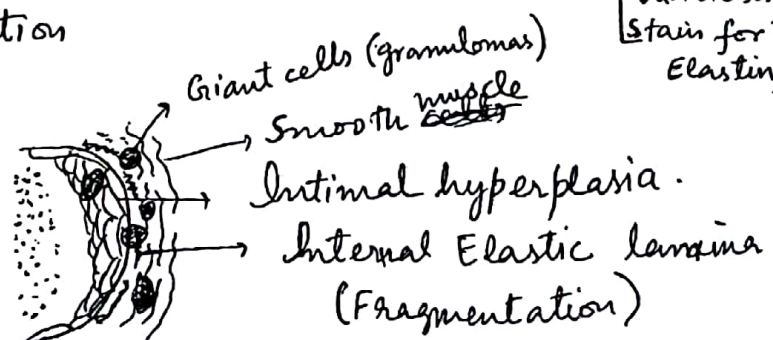 tion
Stain for
Elastin
Giant cells (granulomas)
Smooth muscle
Intimal hyperplasia.
Internal Elastic lamina
(Fragmentation)